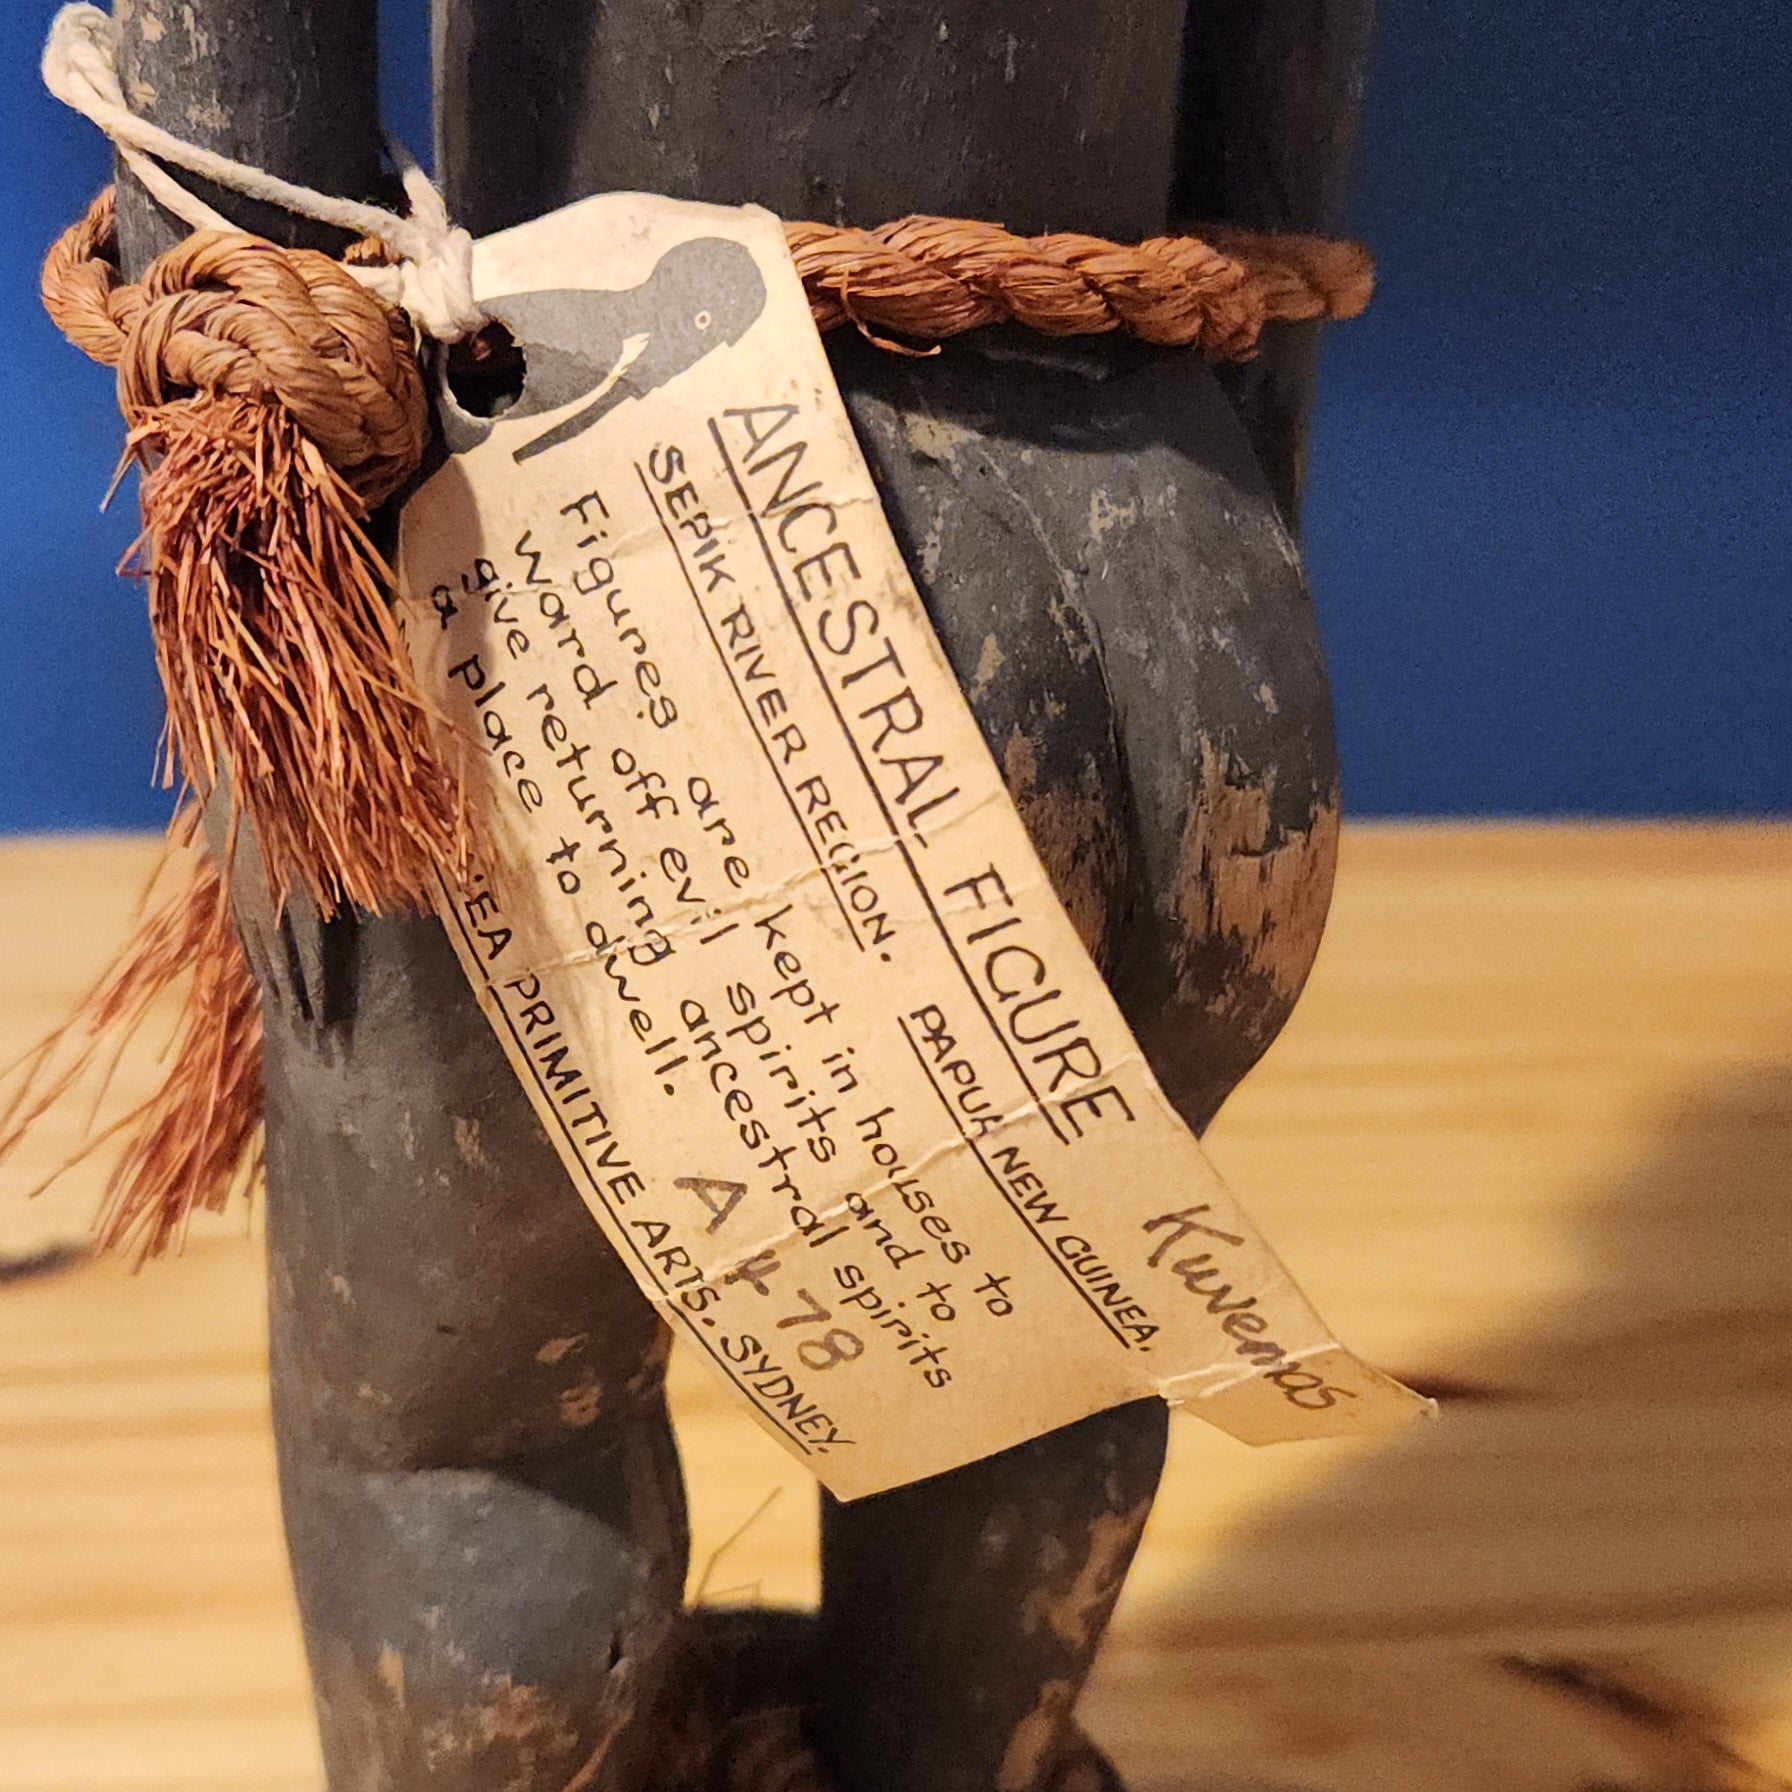 ANCESTRAL FIGURE
Kuvemas
SEPIK RIVER REGION. PAPUA NEW GUINEA.
Figures are kept in houses to
ward off evil spirits and to
give returning ancestral spirits
a place to dwell.
A 478
PRIMITIVE ARTS. SYDNEY.